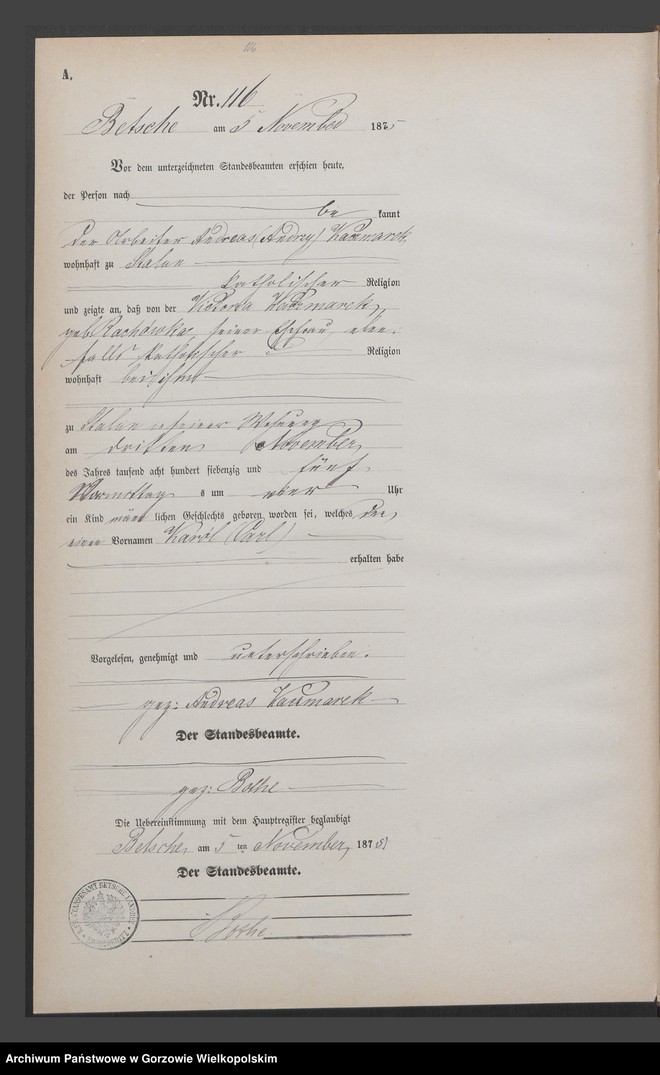 A.
Nr. 116
Betsche am 5 November 1875
Vor dem unterzeichneten Standesbeamten erschien heute,
der Person nach
be kannt
der Arbeiter Andreas (Andrzy) Kaczmarek
wohnhaft zu Stalun
katholischer Religion
und zeigte an, daß von der Victoria Kaczmarek,
geb. Rachówka, seiner Ehefrau, eben-
falls katholischer Religion
wohnhaft bei ihm
zu Stalun in seiner Wohnung
am dritten November
des Jahres tausend acht hundert siebenzig und fünf
Vormittag s um Uhr
ein Kind männ lichen Geschlechts geboren worden sei, welches den
einen Vornamen Karól (Carl)
erhalten habe
Vorgelesen, genehmigt und unterschrieben.
gez: Andreas Kaczmarek
Der Standesbeamte.
gez: Bothe
Die Uebereinstimmung mit dem Hauptregister beglaubigt
Betsche, am 5 ten November, 187 5
Der Standesbeamte.
Bothe
Archiwum Państwowe w Gorzowie Wielkopolskim